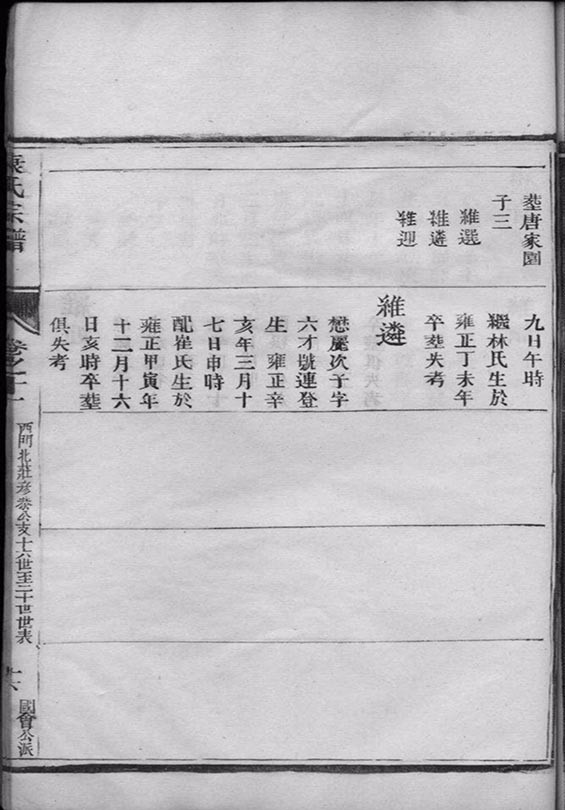 塟唐家園
子三
維選
維遴
維迎
九日午時
繼林氏生於
雍正丁未年
卒塟失考
維遴
懋麗次子字
六才號連登
生 雍正辛
亥年三月十
七日申時
配崔氏生於
雍正甲寅年
十二月十六
日亥時卒塟
俱失考
氏宗譜
卷之十一
西門北莊彥發公支十六世至二十世世表
十六
國會公派